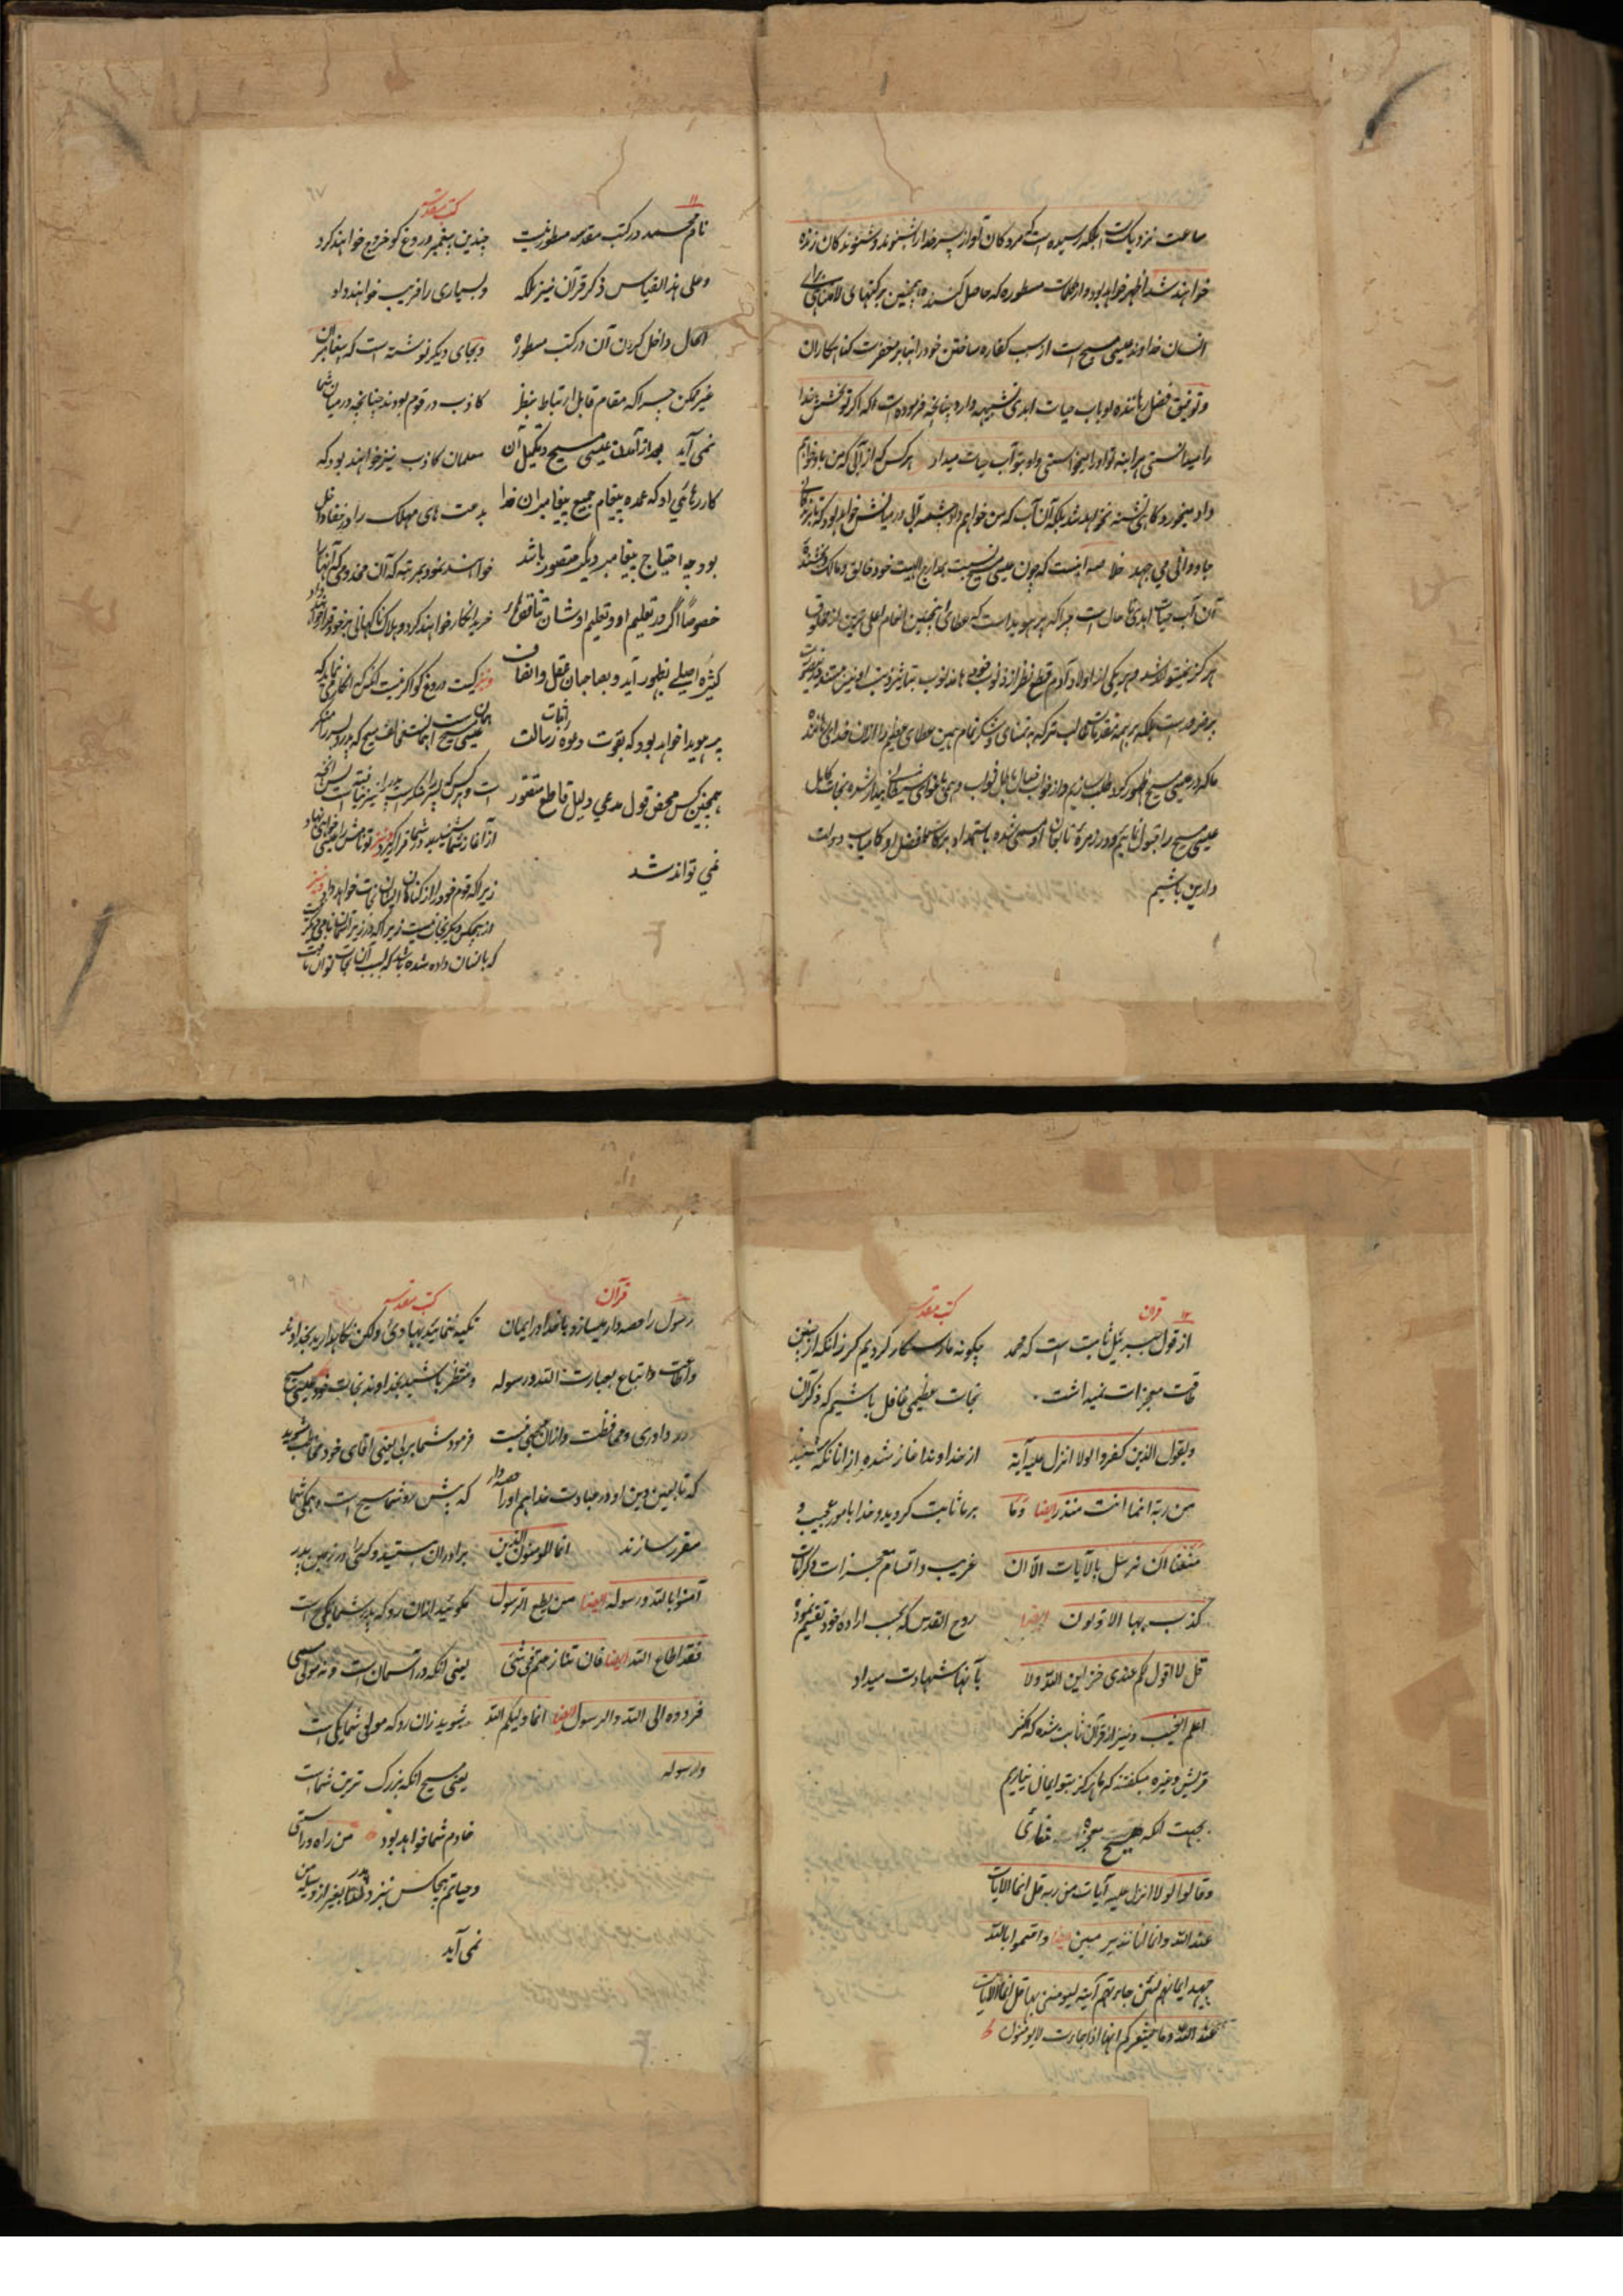 ساعت نزدیکست بلکه رسیده است که مردکان آواز پسر خدا را بشنوند و شنوندکان زنده
خواهند شد اظهر خواهد بود و از کلمات مسطوره که حاصل کنند همچنین برکتهای لامتناهی برای
انسان خداوند عیسی مسیح است از سبب کفاره ساختن خود را بنابر مغفرت کناهکاران
و توفیق فضل رهاننده او باب حیات ابدی تشبیهه داره چنانچه فرموده است که اکر تو بخشش خدا
را میدانستی هر اینه تو او را میخواستی و او بتو آب حیات میداد هر کس که از آبی که من باو خواهم
داد میخورد کاهی تشنه نخواهد شد بلکه آن آب که من خواهم داد چشمه آبی در میانش خواهد بود که تا بزندکانی
جاودانی می جهد خلاصه اینست که چون عیسی مسیح بسبت مدارج الهیت خود خالق و مالک و بخشنده
آن آب حیات ابدی تا حال است چراکه پر هویداست که عطای اینچنین انعام اعلی ترین از مخلوق
هر کز نمیتواند شد و هر یکی از اولاد آدم قطع نظر از ذنوب
پر ضرور است بلکه بر همه تقدمات غالب تر که به تمنای و شکر تمام همین عطای معظم را از آن خدای رهاننده
ما که در عیسی مسیح ظهور کرد طلب سازیم و از خواب خیال باطل ثواب و همی تقوای نفسانی بیدار شده نجات کامل
عیسی مسیح را قبول نمائیم و روزمره تابعان او مسمی شده باستمداد برکات فضل او کامیاب دولت
دارین باشیم
۱۱
نام محمد در کتب مقدسه مسطور نیست
و علی هذا القیاس ذکر قرآن نیز بلکه
الحال داخل کردن آن در کتب مسطوره
غیر ممکن چراکه مقام قابل ارتباط بنظر
نمی آید بعد از آمدن عیسی مسیح و تکمیل آن
کار رهائی او که عمده پیغام جمیع پیغامبران خدا
بود چه احتیاج پیغامبر دیگر متصور باشد
خصوصاً اگر در تعلیم او و تعلیم اوشان تناقض
کثیره اصیلے بظهور آید و بصاحبان عقل و انصاف
پر هویدا خواهد بود که بقوت دعوه اثبات رسالت
همچنین کس محض قول مدعی دلیل قاطع متصور
نمی تواند شد
۹۷
کتب مقدسه
چندین پیغمبر دروغ کو خروج خواهند کرد
و بسیاری را فریب خواهند داد
و بجای دیکر نوشته است که پیغامبران
کاذب در قوم بودند چنانچه در میان شما
معلمان کاذب نیز خواهند بود که
بدعت های مهلک را در خفا داخل
خواهند نمود بمرتبه که آن مخدومی که آنها را
خرید انکار خواهند کرد و هلاک ناکهانی بر خود قرار خواهند داد
و نیز کیست دروغ کو اکر نیست آنکس که انکار می نماید که
عیسی مسیح است همانست مخالف مسیح که پدر و پسر را منکر
است و هر کس که پسر را منکر است پدر را نیز نیافته است پس آنچه
از آغاز شما شنیدید در شما قرار کیرد و نیز تو نامش را عیسی خواهی نهاد
زیرا که قوم خود را از کناهان ایشان نجات خواهد داد و نیز
از هیچکس دیکر نجات نیست زیرا که در زیر آسمان نامی دیکر
که بانسان داده شده باشد که بسبب آن نجات توان یافت
۱۲ قرآن
از قول جبرئیل ثابت است که محمد
طاقت معجزات نمیداشت
و یقول الذین کفروا لولا انزل علیه آیة
من ربه انما انت منذر ایضا و ما
منعنا ان نرسل بالآیات الا ان
کذب بها الاولون ایضا
قل لا اقول لکم عندی خزاین الله و لا
اعلم الغیب و نیز از قرآن ثابت شده که کفر
قریش و غیره میکفتند که ما هرکز بتو ایمان نیاریم
بجهت آنکه هیچ معجزات ننمائی
و قالوا لولا انزل علیه آیات من ربه قل انما الایات
عند الله و انما انا نذیر مبین ایضا و اقسموا بالله
جهد ایمانهم لئن جاءتهم آیة لیومنن بها قل انما الآیات
عند الله و ما یشعرکم انها اذا جاءت لا یومنون
کتب مقدسه
چکونه ما رستکار کردیم کر زآنکه از چنین
نجات عظیمی غافل باشیم که ذکر آن
از خداوند آغاز شده از آنانکه شنیدند
بر ما ثابت کردید و خدا بامور عجیب و
غریب و اقسام معجزات و کرامات
روح القدس که بحسب اراده خود تقسیم نموده
بآنها شهادت میداد
قرآن
رسول را حصه دار میسازد با خدا در ایمان
و اطاعت و اتباع بعبارت الله و رسوله
در داوری و محافظت و از آن عجبی نیست
که تابعین دین او در عبادت خدا هم او را حصه دار
مقرر سازند انما المومنون الذین
آمنوا بالله و رسوله ایضا من یطع الرسول
فقد اطاع الله ایضا فان تنازعتم فی شئ
فردوه الی الله و الرسول ایضا انما ولیکم الله
و رسوله
۹۸
کتب مقدسه
تکیه ننمائید بهادی ولکن نکاهدارید بخداوند
و منتظر باشید بخداوند نجات خود عیسی مسیح
فرمود شما بربی یعنی آقای خود مخاطب مشوید
که پیش رو شما مسیح است و همکی شما
برادران هستید و کسی را در زمین پدر
مکوئید از آن رو که پدر شما یکی است
یعنی آنکه در آسمان است و نه مولی مسمی
شوید زان رو که مولی شما یکی است
یعنی مسیح آنکه بزرک ترین شماست
خادم شما خواهد بود من راه و راستی
و حیاتم هیچکس نزد پدر مطلقا بغیر از وسیله من
نمی آید